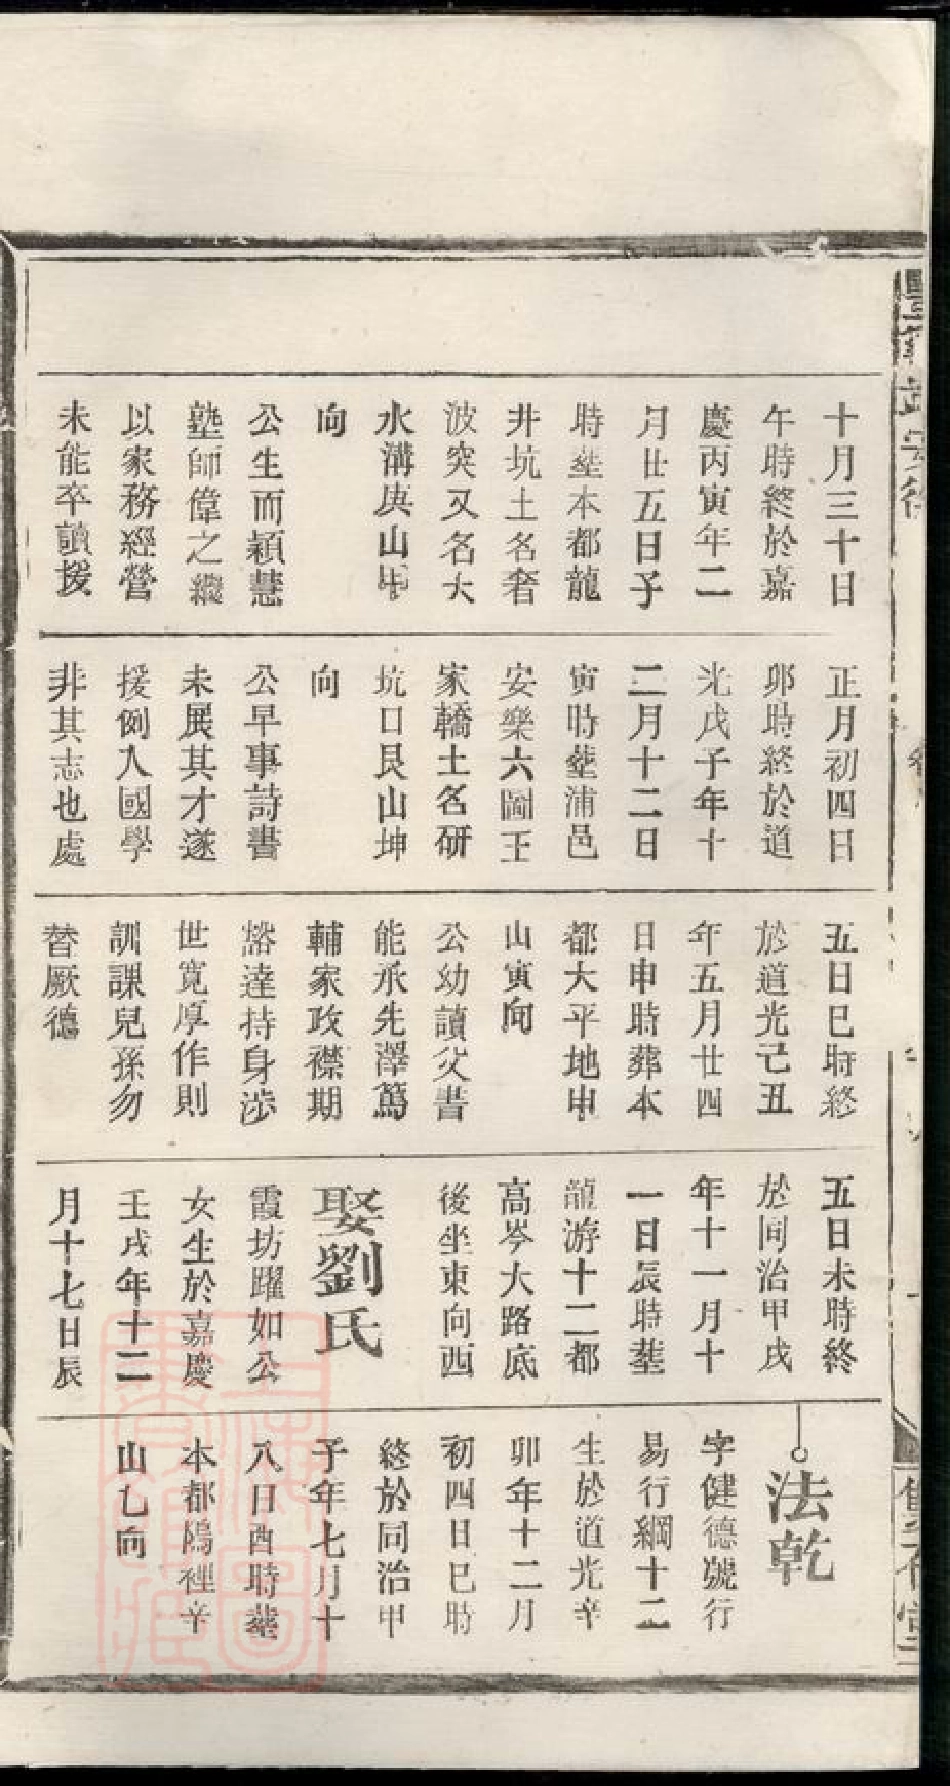 十月三十日
午時終於嘉
慶丙寅年二
月廿五日子
時塟本都龍
井坑土名奢
波突又名大
水溝庚山甲
向
公生而穎慧
塾師偉之繼
以家務經營
未能卒讀援
正月初四日
卯時終於道
光戊子年十
二月十二日
寅時塟浦邑
安樂六圖王
家轎土名研
坑口艮山坤
向
公早事詩書
未展其才遂
援例入國學
非其志也處
五日巳時終
於道光己丑
年五月廿四
日申時葬本
都大平地申
山寅向
公幼讀父書
能承先澤篤
輔家政襟期
豁達持身涉
世寬厚作則
訓課兒孫勿
替厥德
五日未時終
於同治甲戌
年十一月十
一日辰時塟
龍游十二都
高岑大路底
後坐東向西
娶劉氏
霞坊躍如公
女生於嘉慶
壬戌年十二
月十七日辰
法乾
字健德號行
易行綱十二
生於道光辛
卯年十二月
初四日巳時
終於同治甲
子年七月十
八日酉時塟
本都隖裡辛
山乙向